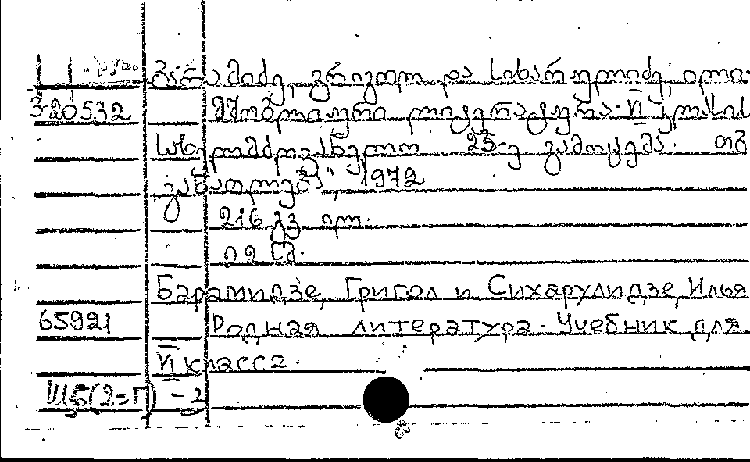 ბარამიძე, გრიგოლ და სიხარულიძე, ილია
320532 მშობლიური ლიტერატურა VI კლასის
სახელმძღვანელო 23-ე გამოცემა. თბ
"განათლება", 1972
216 გვ ილ.
Барамидзе, Григол и Сихарулидзе, Илья
65921 Родная литература. Учебник для
VI класса.